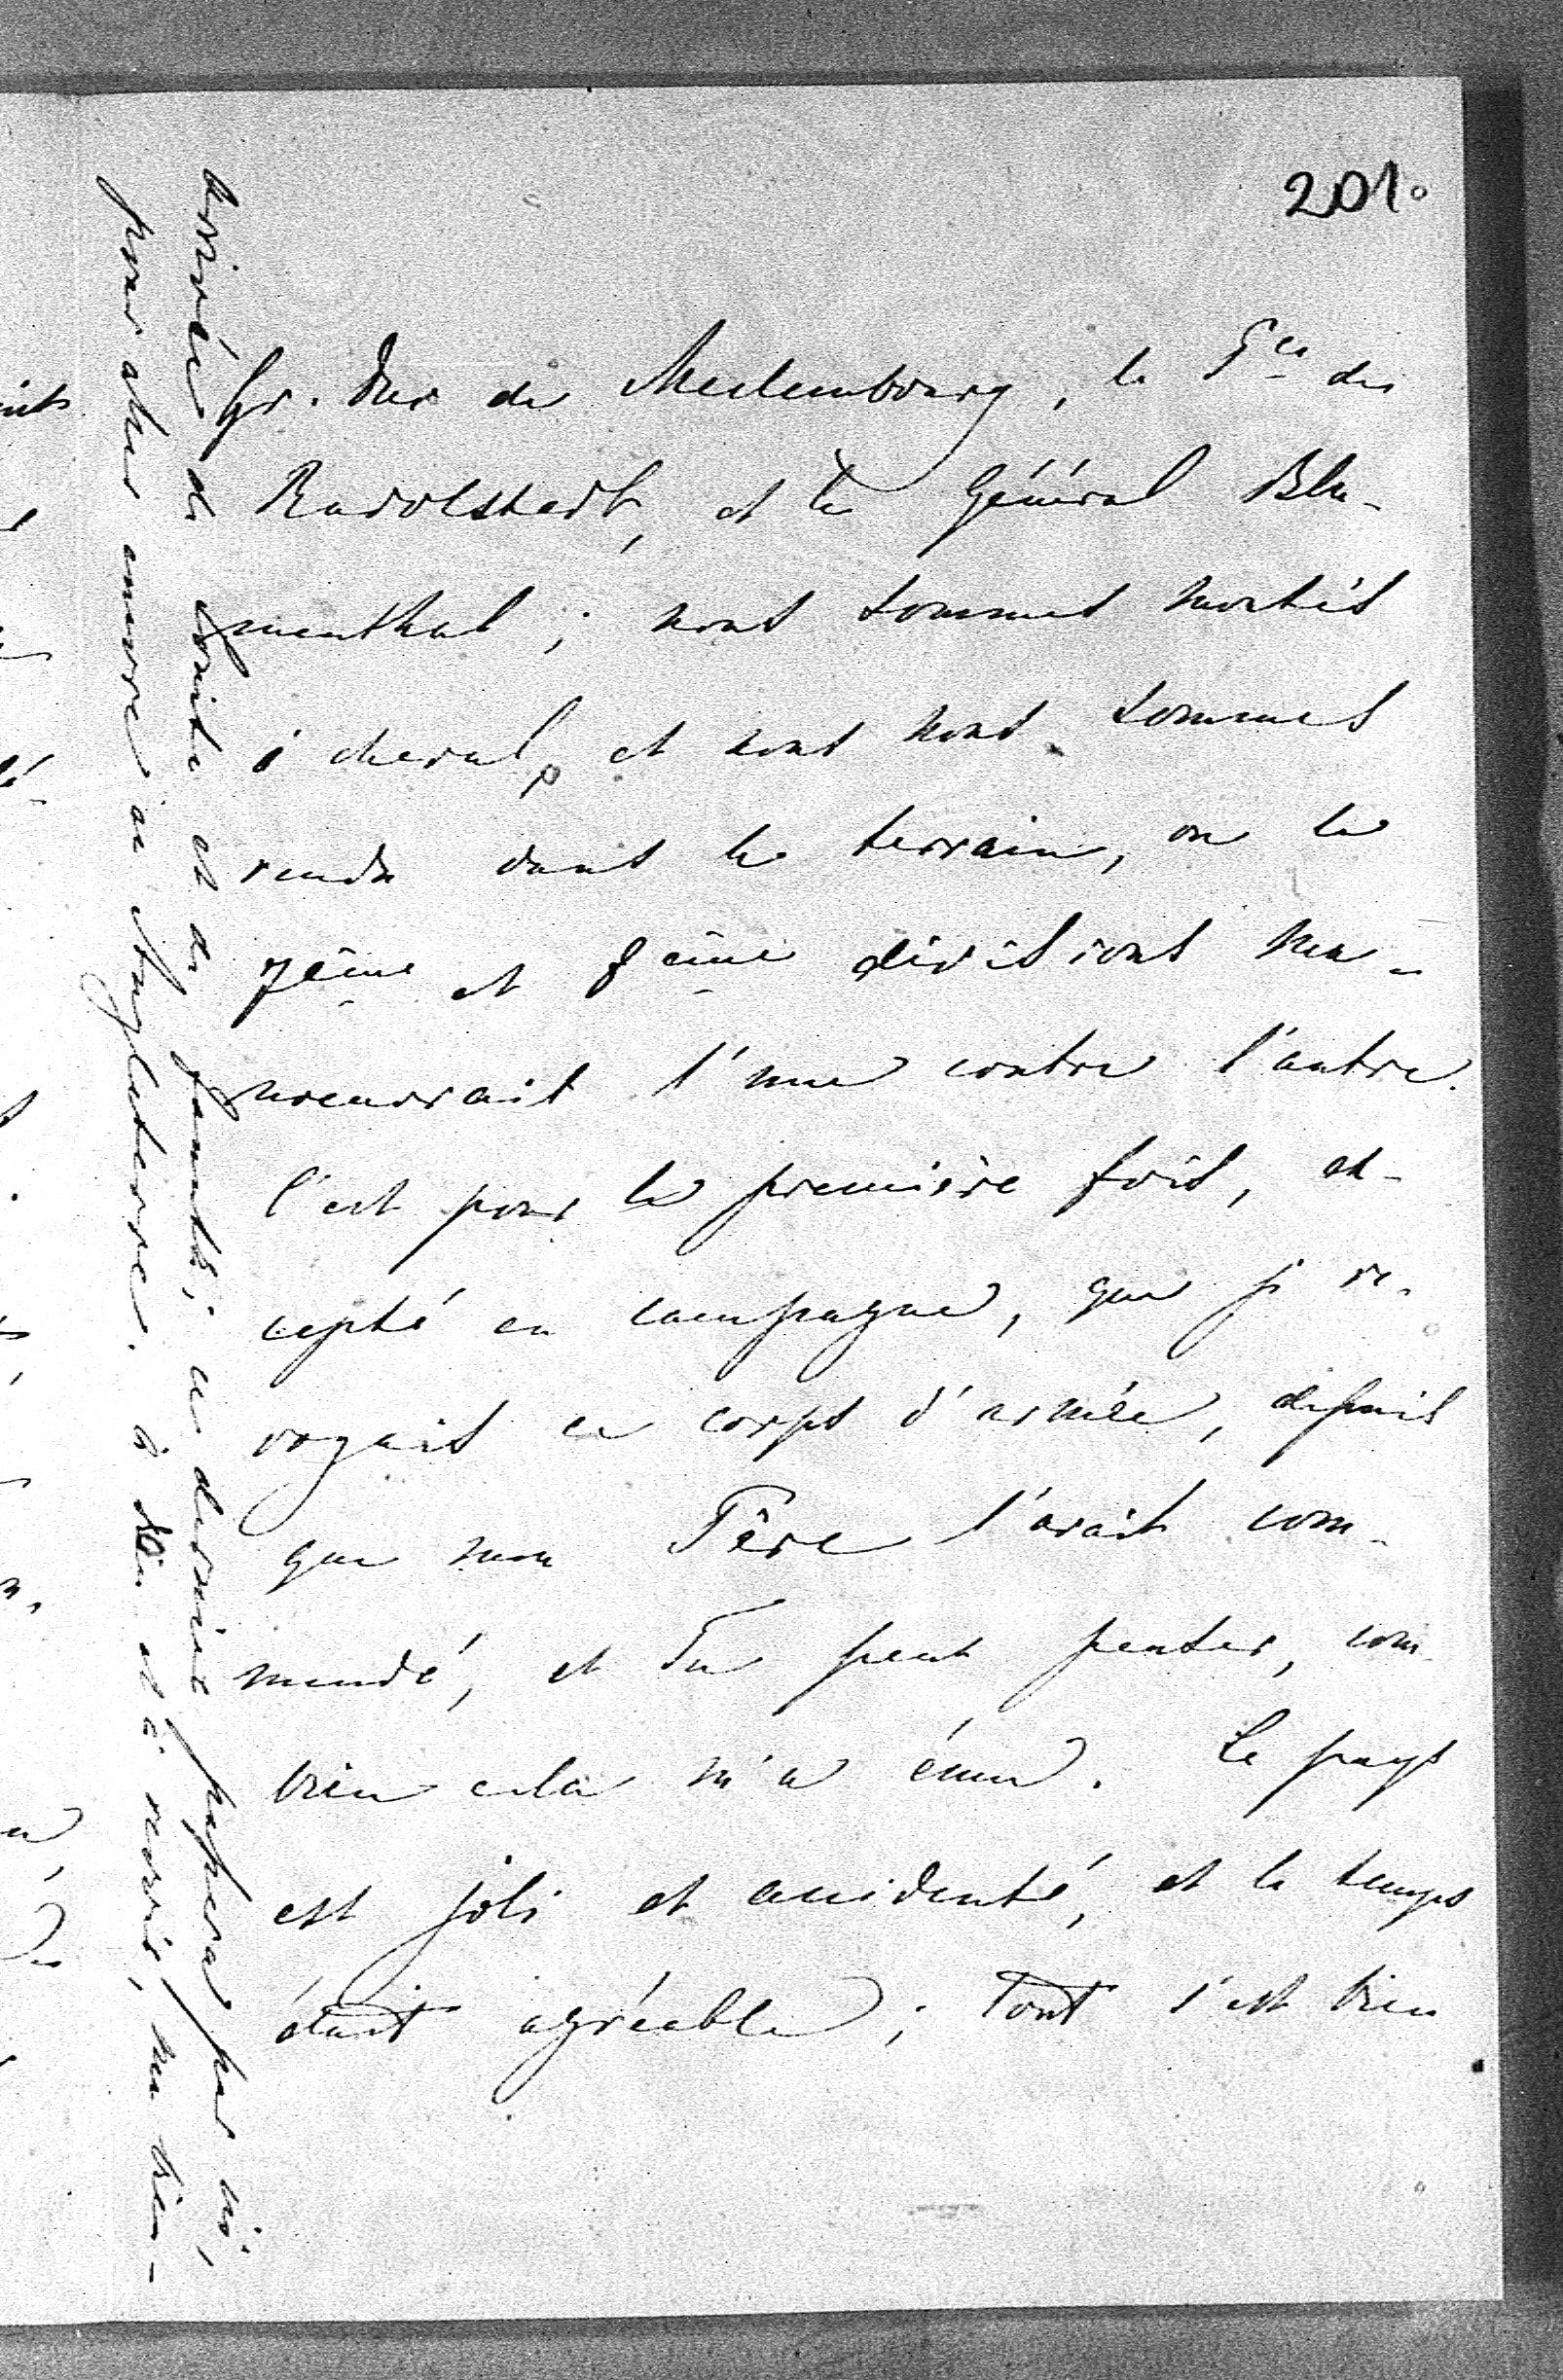 201.
Gr. Duc de Meclembourg, le Pce de
Rudolstadt, et le Général Blu-
menthal ; nous sommes montés
à cheval, et nous nous sommes
rendu dans le terrain, ou la
7ème et 8ème divisions ma-
noeuvrait l'une contre l'autre.
C'est pour la première fois, ex-
cepté en campagne, que je re-
voyais ce corps d'armée, depuis
que mon Père l'avait com-
mandé, et Tu peut penser, com-
bien cela m'a ému. Le pays
est joli et accidenté, et le temps
était agréable ; tout s'est bien
arrivée de Louise et de ; ce dernier passera par ici,
pour aller encore en Angleterre. à Dieu et à revoir, ma bien-